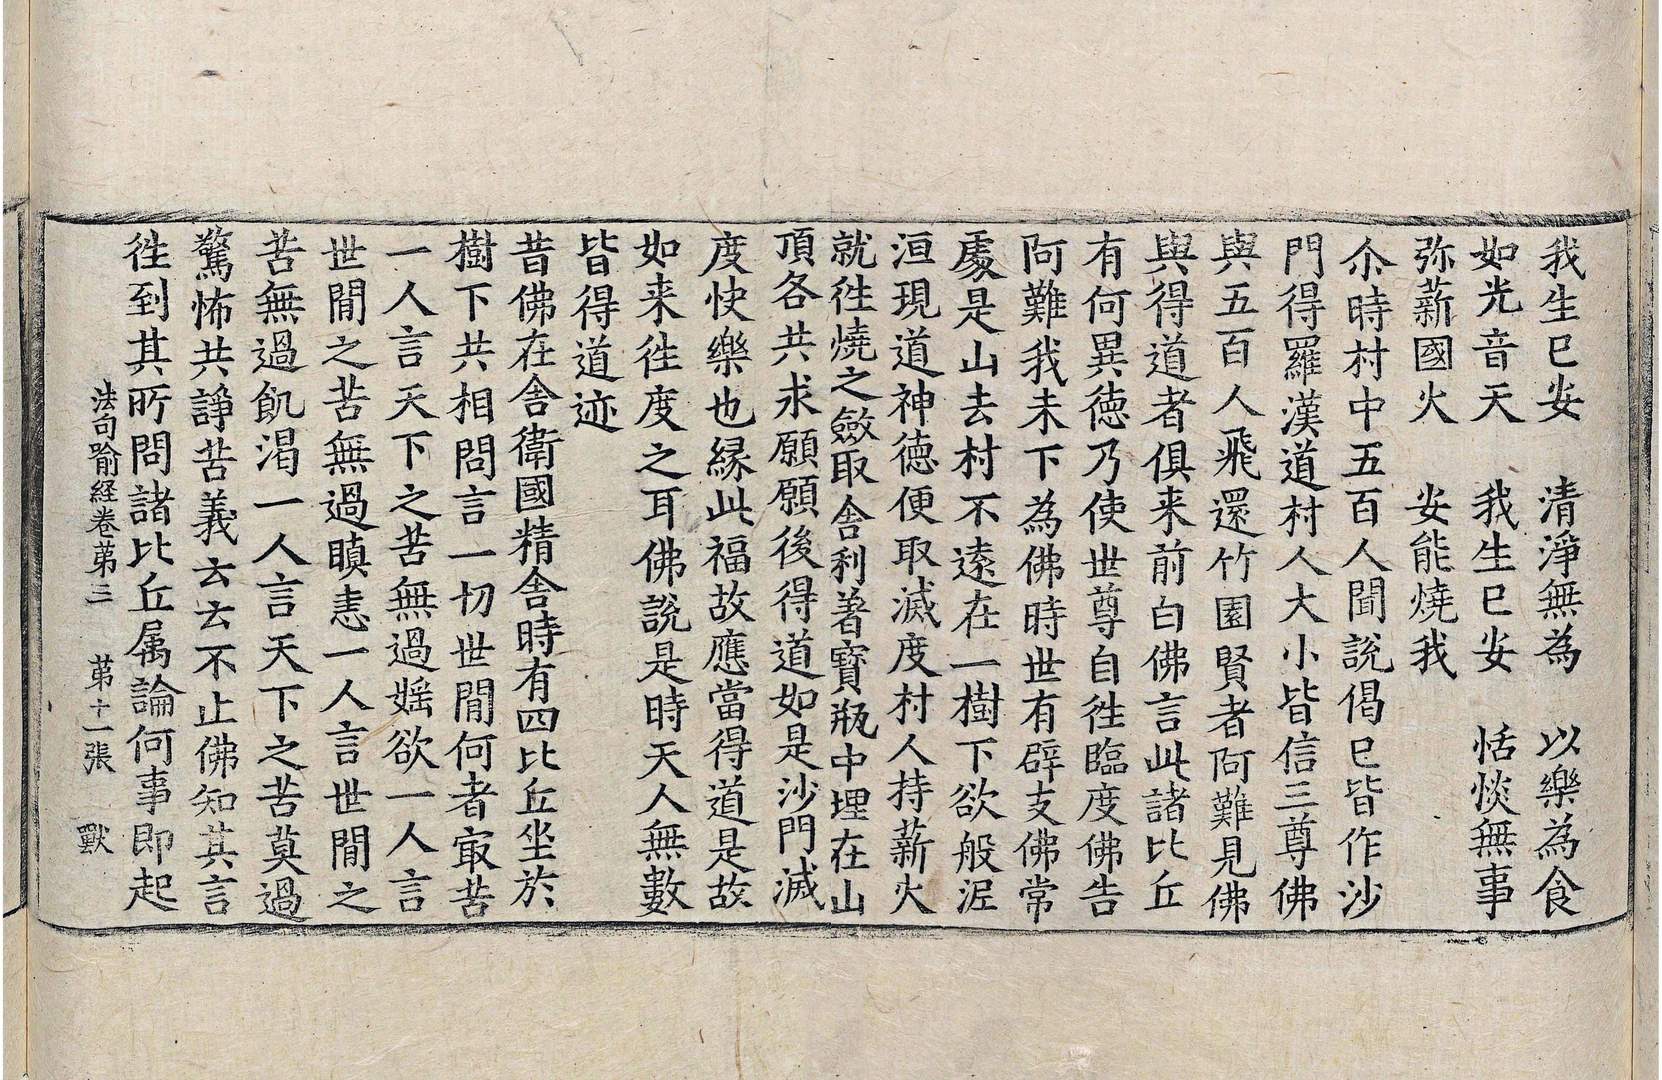 我生已安　清淨無為　以樂為食
如光音天　我生已安　恬惔無事
弥薪國火　安能燒我
尒時村中五百人聞說偈已皆作沙
門得羅漢道村人大小皆信三尊佛
與五百人飛還竹園賢者阿難見佛
與得道者俱来前白佛言此諸比丘
有何異徳乃使世尊自徃臨度佛告
阿難我未下為佛時世有辟支佛常
處是山去村不逺在一樹下欲般泥
洹現道神徳便取滅度村人持薪火
就徃燒之斂取舎利著寳瓶中埋在山
頂各共求願願後得道如是沙門滅
度快樂也縁此福故應當得道是故
如来徃度之耳佛說是時天人無數
皆得道迹
昔佛在舎衛國精舎時有四比丘坐於
樹下共相問言一切世間何者㝡苦
一人言天下之苦無過婬欲一人言
世間之苦無過瞋恚一人言世間之
苦無過飢渴一人言天下之苦莫過
驚怖共諍苦義云云不止佛知其言
徃到其所問諸比丘属論何事即起
法句喻経卷苐三　苐十一張　獸